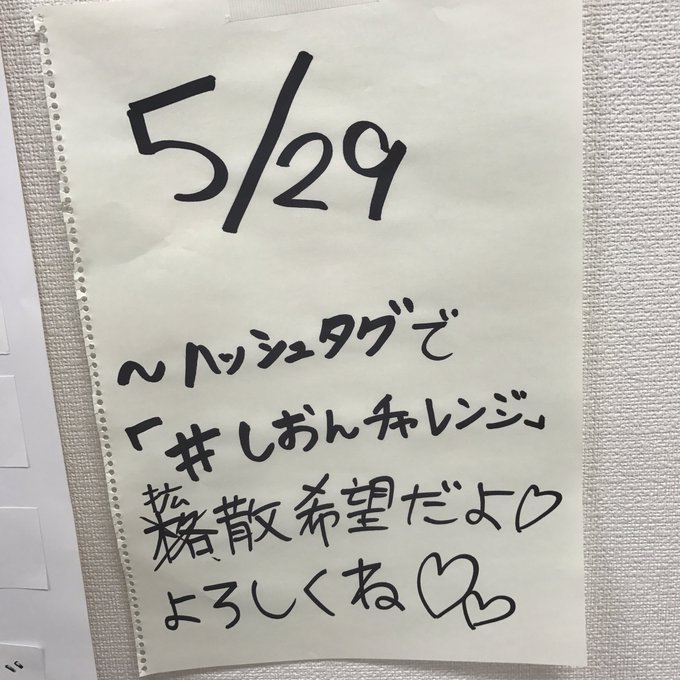 5/29
～ハッシュタグで
「#しおんチャレンジ」
拡散希望だよ♡
よろしくね♡♡